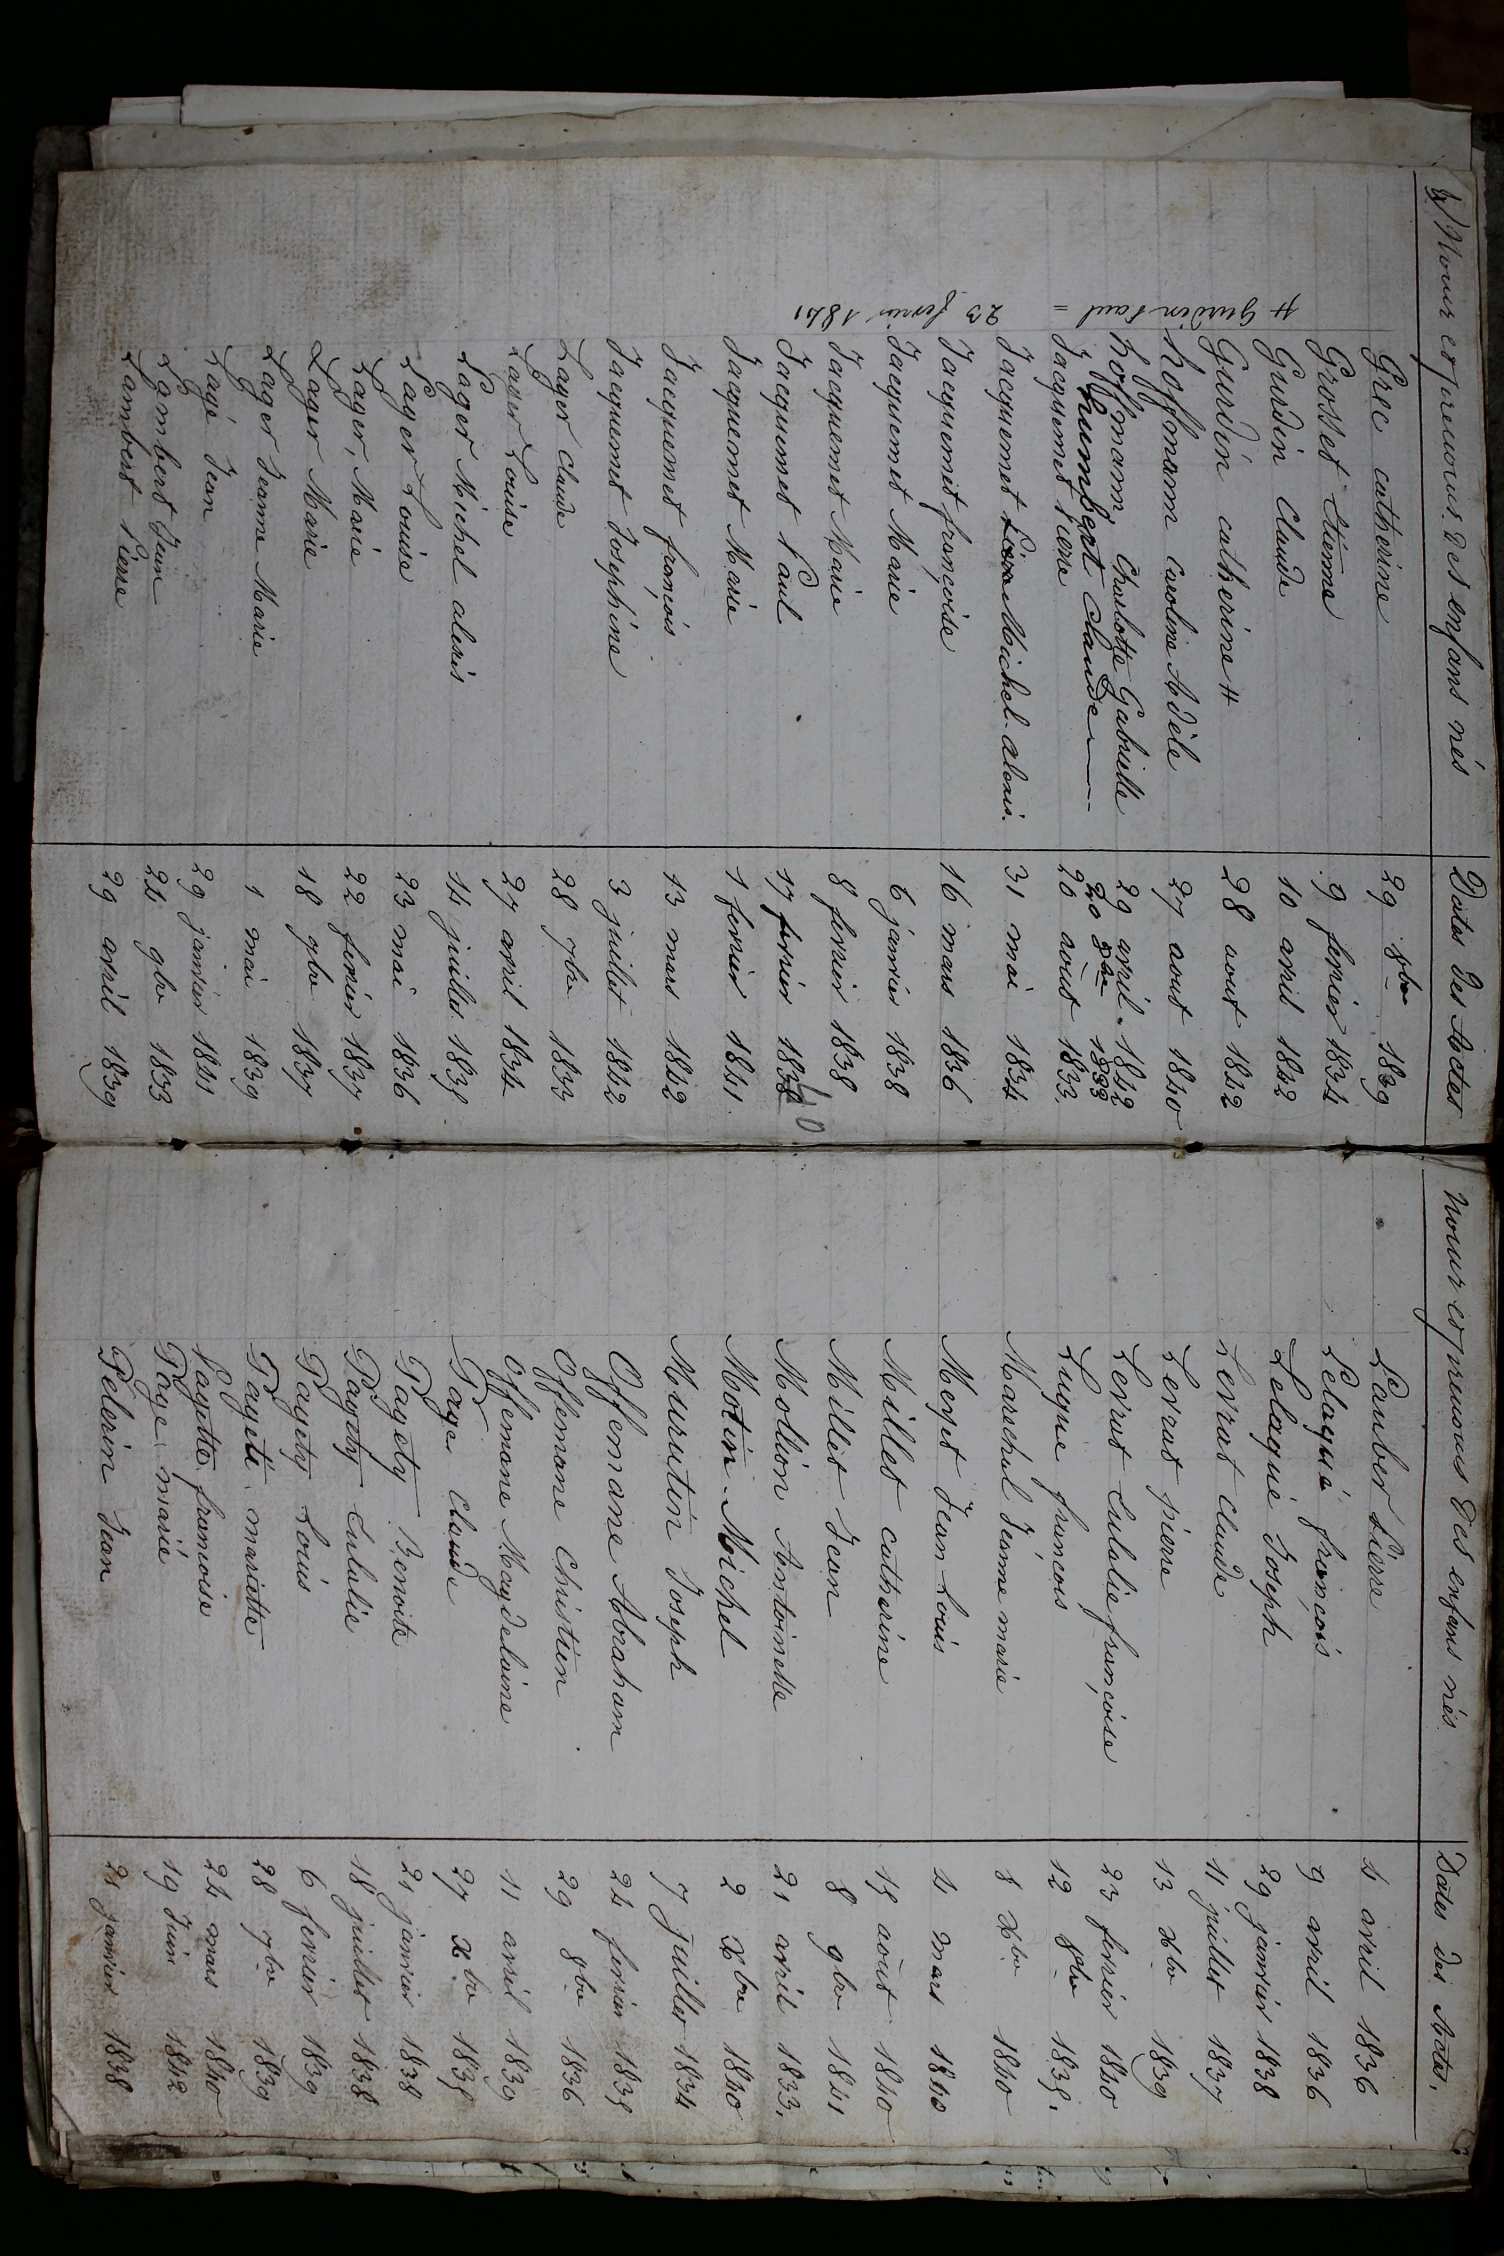 Noms et prenoms des enfans nés Dates des Actes
Grec catherine 29 8bre 1839
Grosset Etienne 9 fevrier 1834
Gurdin Claude 10 avril 1842
Gurdin catherine # 28 aout 1842
Hoffmann Caroline Adèle 27 aout 1840
Hoffmann Charlotte Gabrielle 29 avril 1842
humbert Claude 20 8bre 1833
Jacquemet Pierre 20 août 1833
Jacquemet Michel alexis 31 mai 1834
Jacquemet françoise 16 mars 1836
Jacquemet Marie 6 janvier 1838
Jacquemet Marie 8 fevrier 1838
Jacquemet Paul 17 fevrier 1840
Jacquemet Marie 1 fevrier 1841
Jacquemet françois 13 mars 1842
Jacquemet Josephine 3 juillet 1842
Lager claude 28 7bre 1833
Lager Louise 27 avril 1834
Lager Michel alexis 14 juillet 1835
Lager Louise 23 mai 1836
Lager, Marie 22 fevrier 1837
Lager Marie 18 9bre 1837
Lager Jeanne Marie 1 mai 1839
Lagé Jean 29 janvier 1841
Lambert Jean 24 9bre 1833
Lambert Pierre 29 avril 1839
# Gurdin Paul = 23 fevrier 1841
Noms et prenoms des enfans nés Dates des Actes.
Lauber Pierre 4 avril 1836
Lelaqué françois 9 avril 1836
Lelaqué Joseph 29 janvier 1838
Levrat claude 11 juillet 1837
Levrat pierre 13 Xbre 1839
Levrat Eulalie françoise 23 fevrier 1840
Luque françois 12 8bre 1835.
Marechal Jeanne marie 8 Xbre 1840
Meyet Jean Louis 4 mars 1840
Millet catherine 15 août 1840
Millet Jean 8 9bre 1841
Mollion Antoinette 21 avril 1833.
Motin Michel 2 Xbre 1840
Murutin Joseph 7 Juillet 1834
Offemane Abraham 24 fevrier 1835
Offemane Christien 29 8bre 1836
Offemane Magdelaine 11 avril 1839
Page Claude 27 Xbre 1835
Pagety Benoite 21 janvier 1838
Pagety Eulalie 18 juillet 1838
Pagety Louis 6 fevrier 1839
Pageti mariette 28 7bre 1839
Pagette francoise 24 mars 1840
Page marie 19 Juin 1842
Pelerin Jean 21 janvier 1838